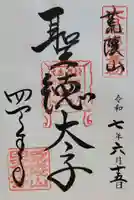 荒陵山
令和七年六月十五日
聖徳太子
四天王寺